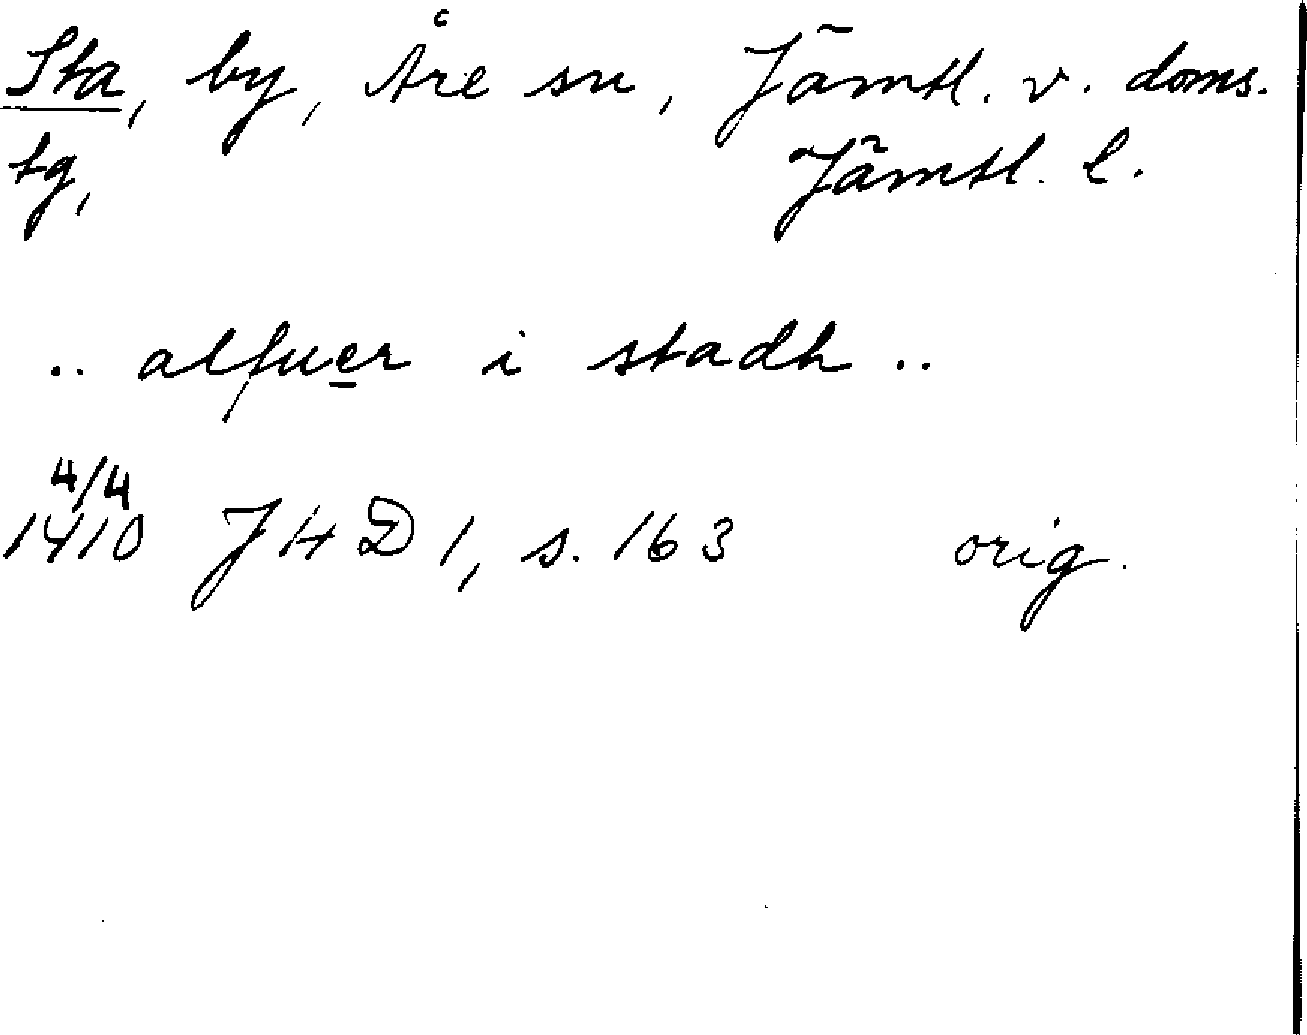 Sta, by, Åre sn, Jämtl. v. doms.
tg, Jämtl. l.
.. alfuer i stadh ..
4/4
1410 JHD 1, s. 163 orig.